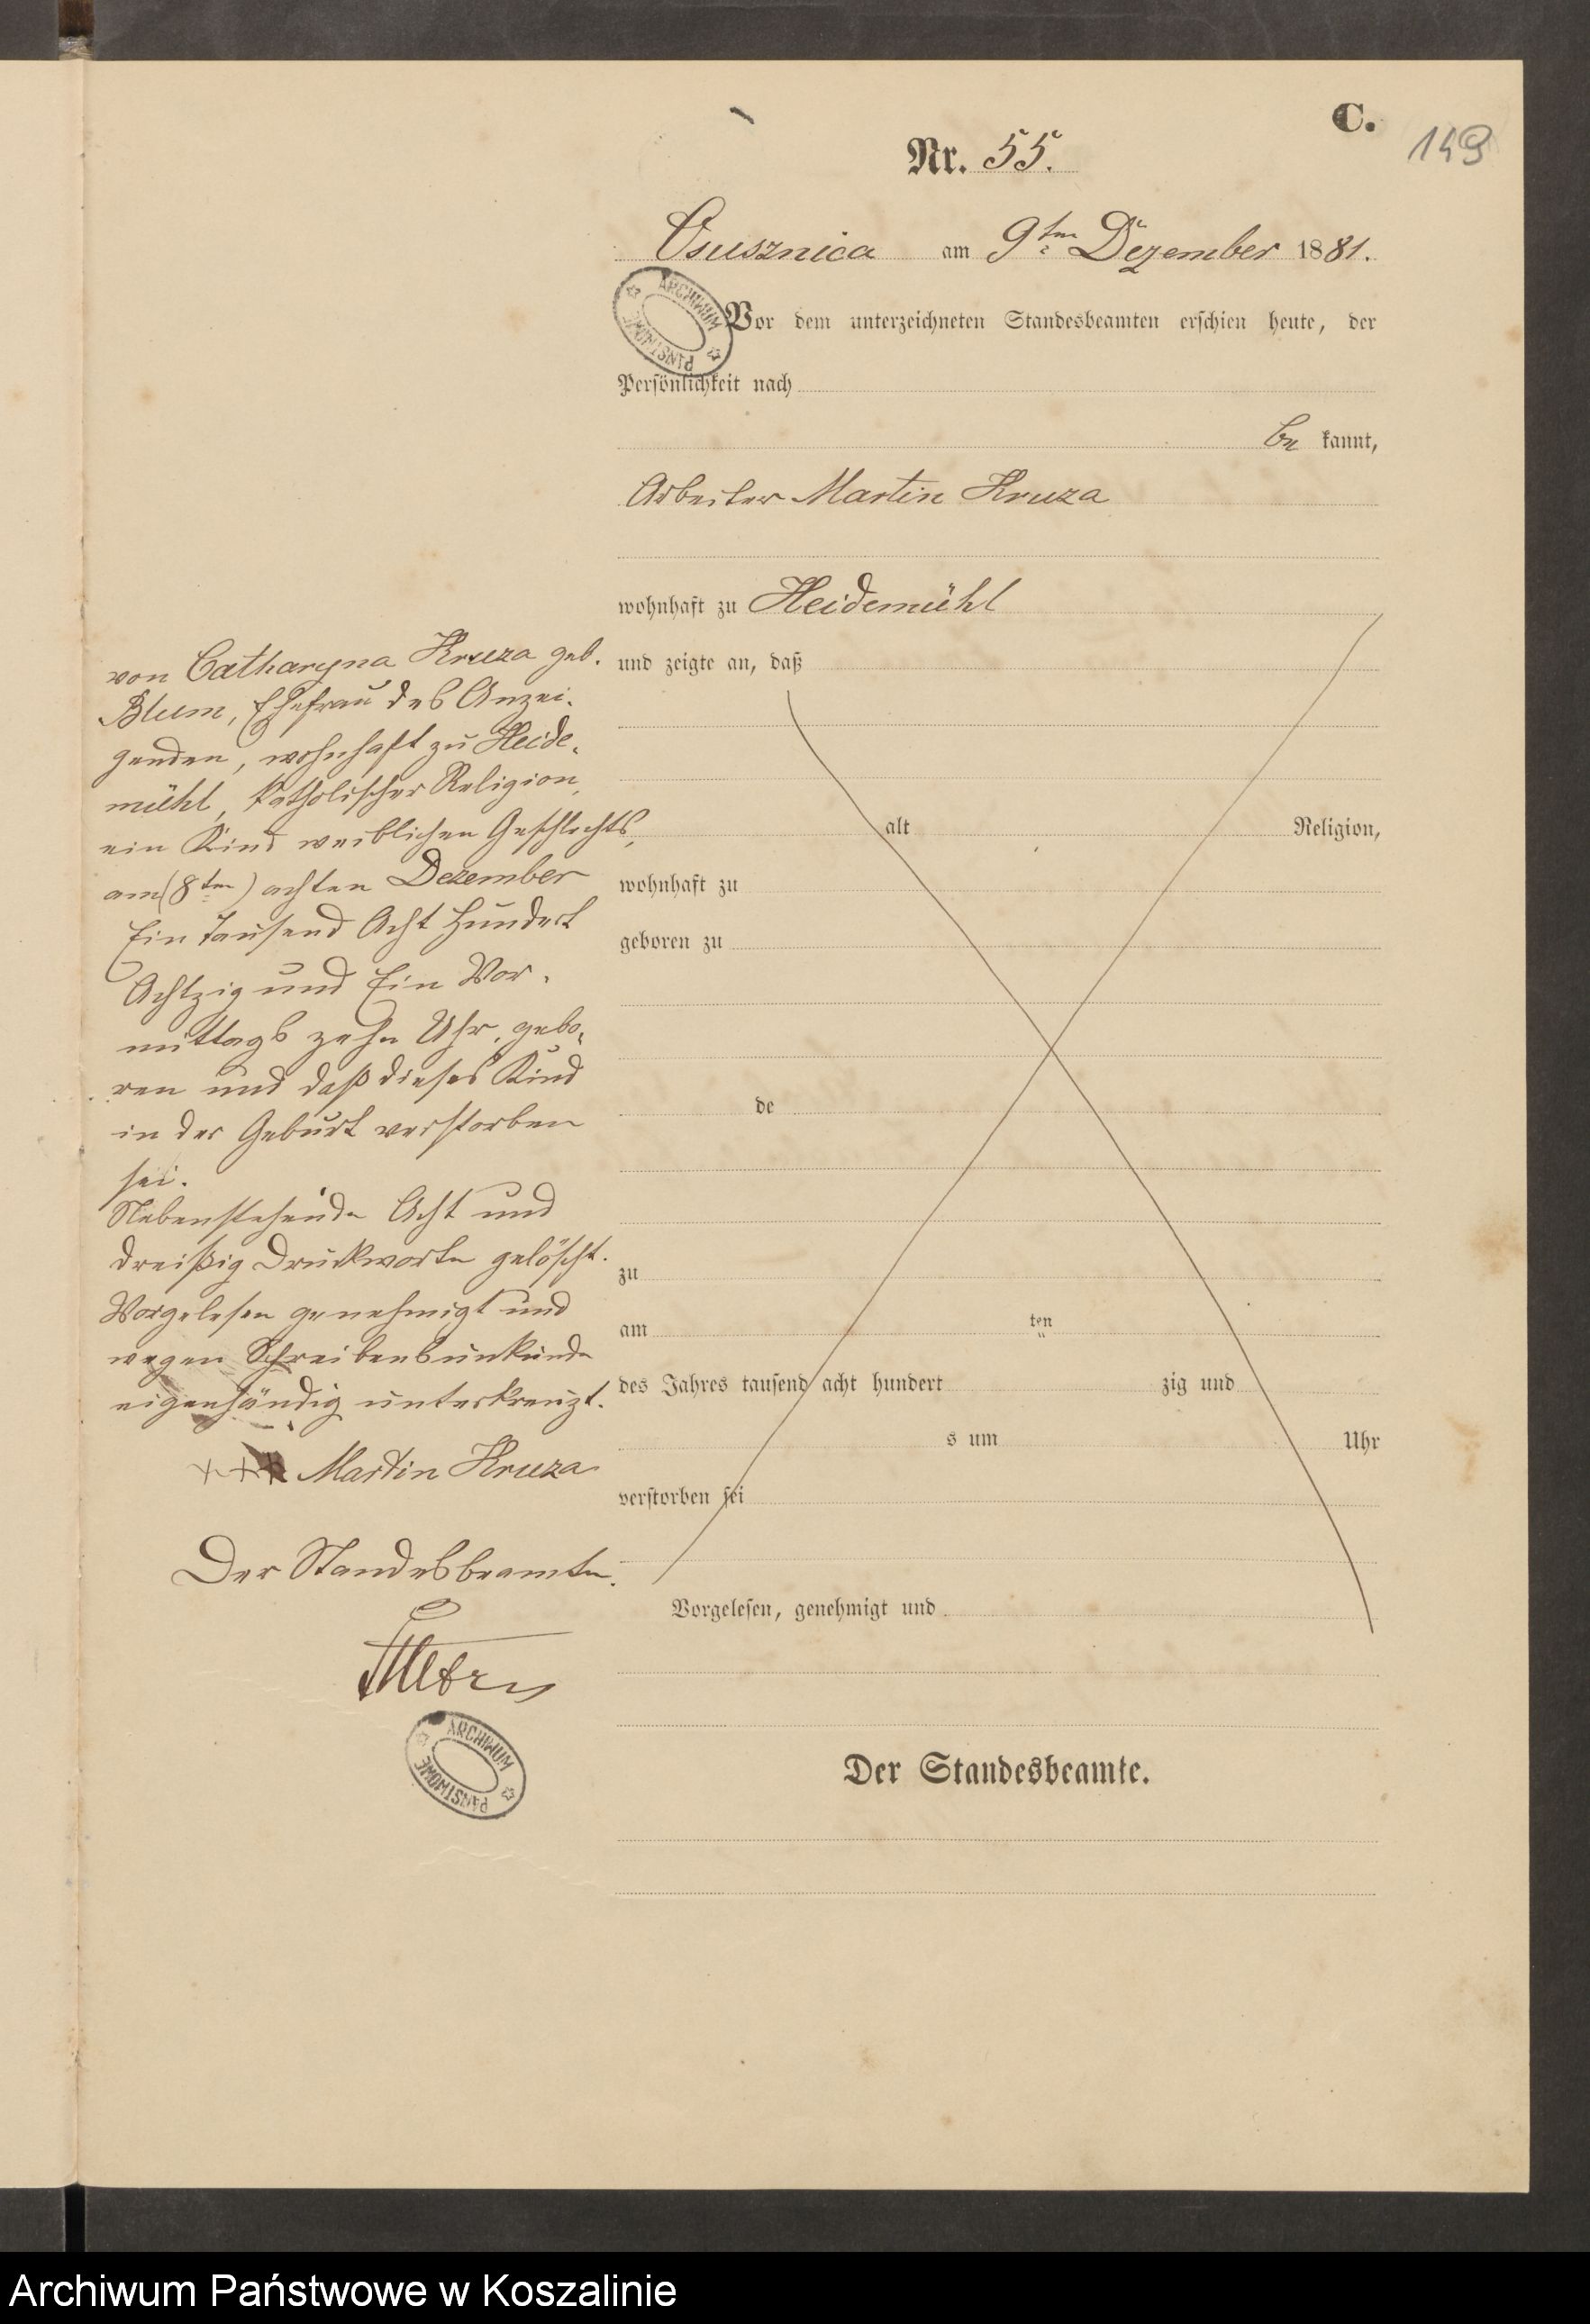 C.
149
Nr. 55.
Osusznica am 9ten Dezember 1881.
Vor dem unterzeichneten Standesbeamten erschien heute, der
Persönlichkeit nach
be kannt,
Arbeiter Martin Kruza
wohnhaft zu Heidemühl
und zeigte an, daß
alt Religion,
wohnhaft zu
geboren zu
de
zu
am ten
des Jahres tausend acht hundert zig und
s um Uhr
verstorben sei
Vorgelesen, genehmigt und
Der Standesbeamte.
von Catharyna Kruza geb.
Blum, Ehefrau des Anzei-
genden, wohnhaft zu Heide-
mühl, katholischer Religion,
ein Kind weiblichen Geschlechts,
am (8ten) achten Dezember
Ein Tausend Acht Hundert
Achtzig und Ein Vor-
mittags zehn Uhr, gebo-
ren und daß dieses Kind
in der Geburt verstorben
sei.
Nebenstehende Acht und
dreißig Druckworte gelöscht.
Vorgelesen genehmigt und
wegen Schreibensunkunde
eigenhändig unterkreuzt.
+++ Martin Kruza
Der Standesbeamte.
ARCHIWUM PAŃSTWOWE
ARCHIWUM PAŃSTWOWE
Archiwum Państwowe w Koszalinie